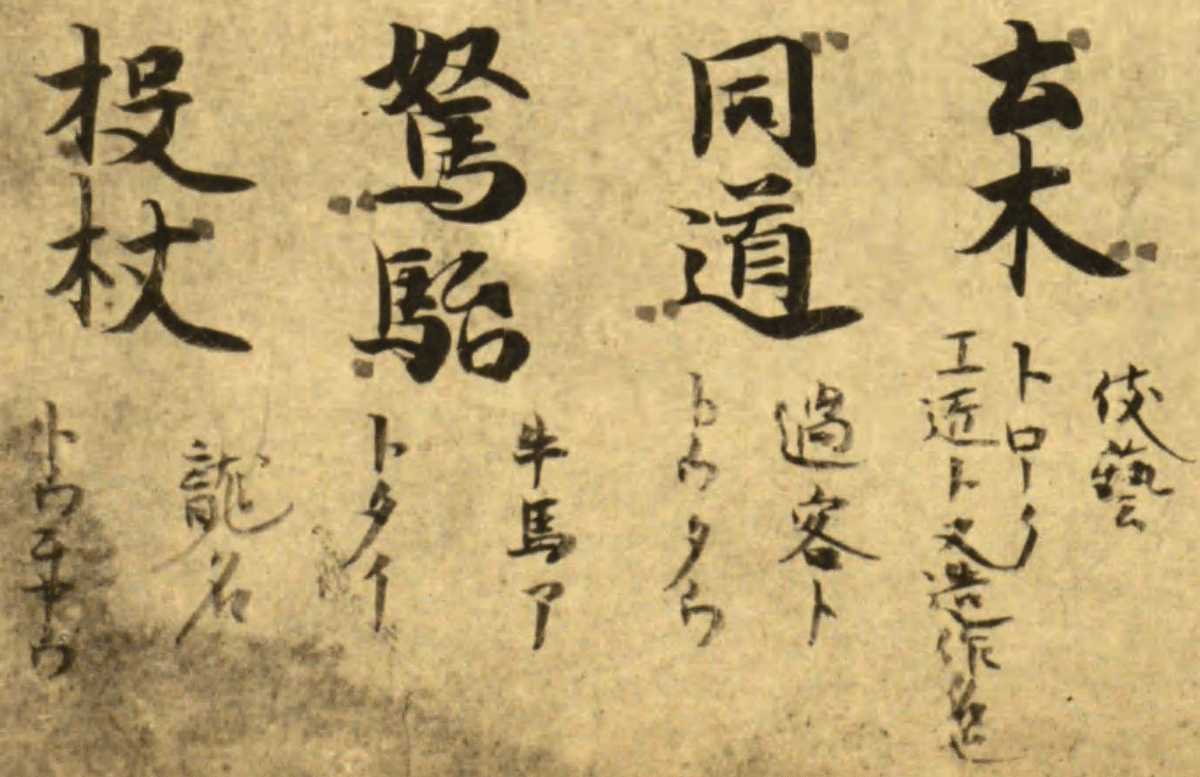 土木
伎藝
工匠ト又造作名也
同道
過客ト
トウタウ
駑駘
牛馬ア
トタイ
投杖
龍名
トウチヤウ